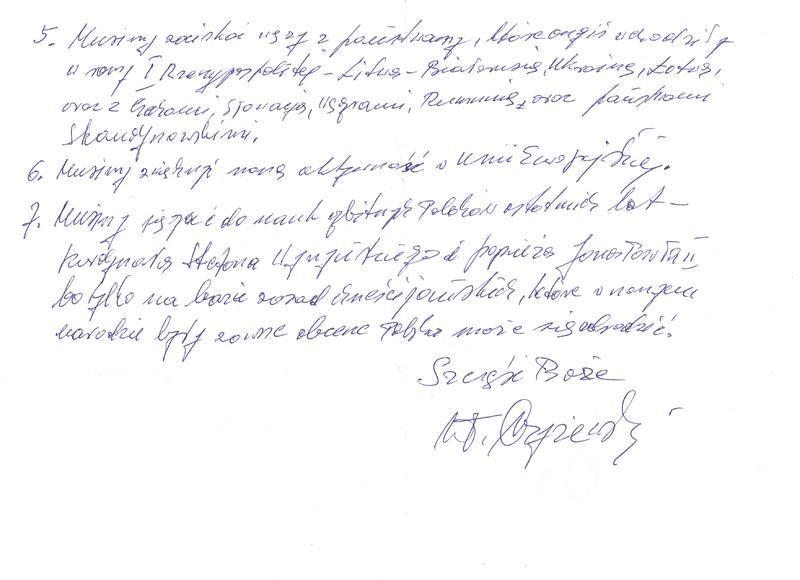 5. Musimy zacieśnić więzy z państwami, które ongiś wchodziły
w ramy I Rzeczypospolitej - Litwą - Białorusią, Ukrainą, Łotwą,
oraz z Czechami, Słowacją, Węgrami, Rumunią, oraz państwami
Skandynawskimi.
6. Musimy zwiększyć naszą aktywność w Unii Europejskiej.
7. Musimy sięgać do nauk wybitnych Polaków ostatnich lat -
Kardynała Stefana Wyszyńskiego i papieża Jana Pawła II
bo tylko na bazie zasad chrześcijańskich, które w naszym
narodzie były zawsze obecne Polska może się odrodzić.
Szczęść Boże